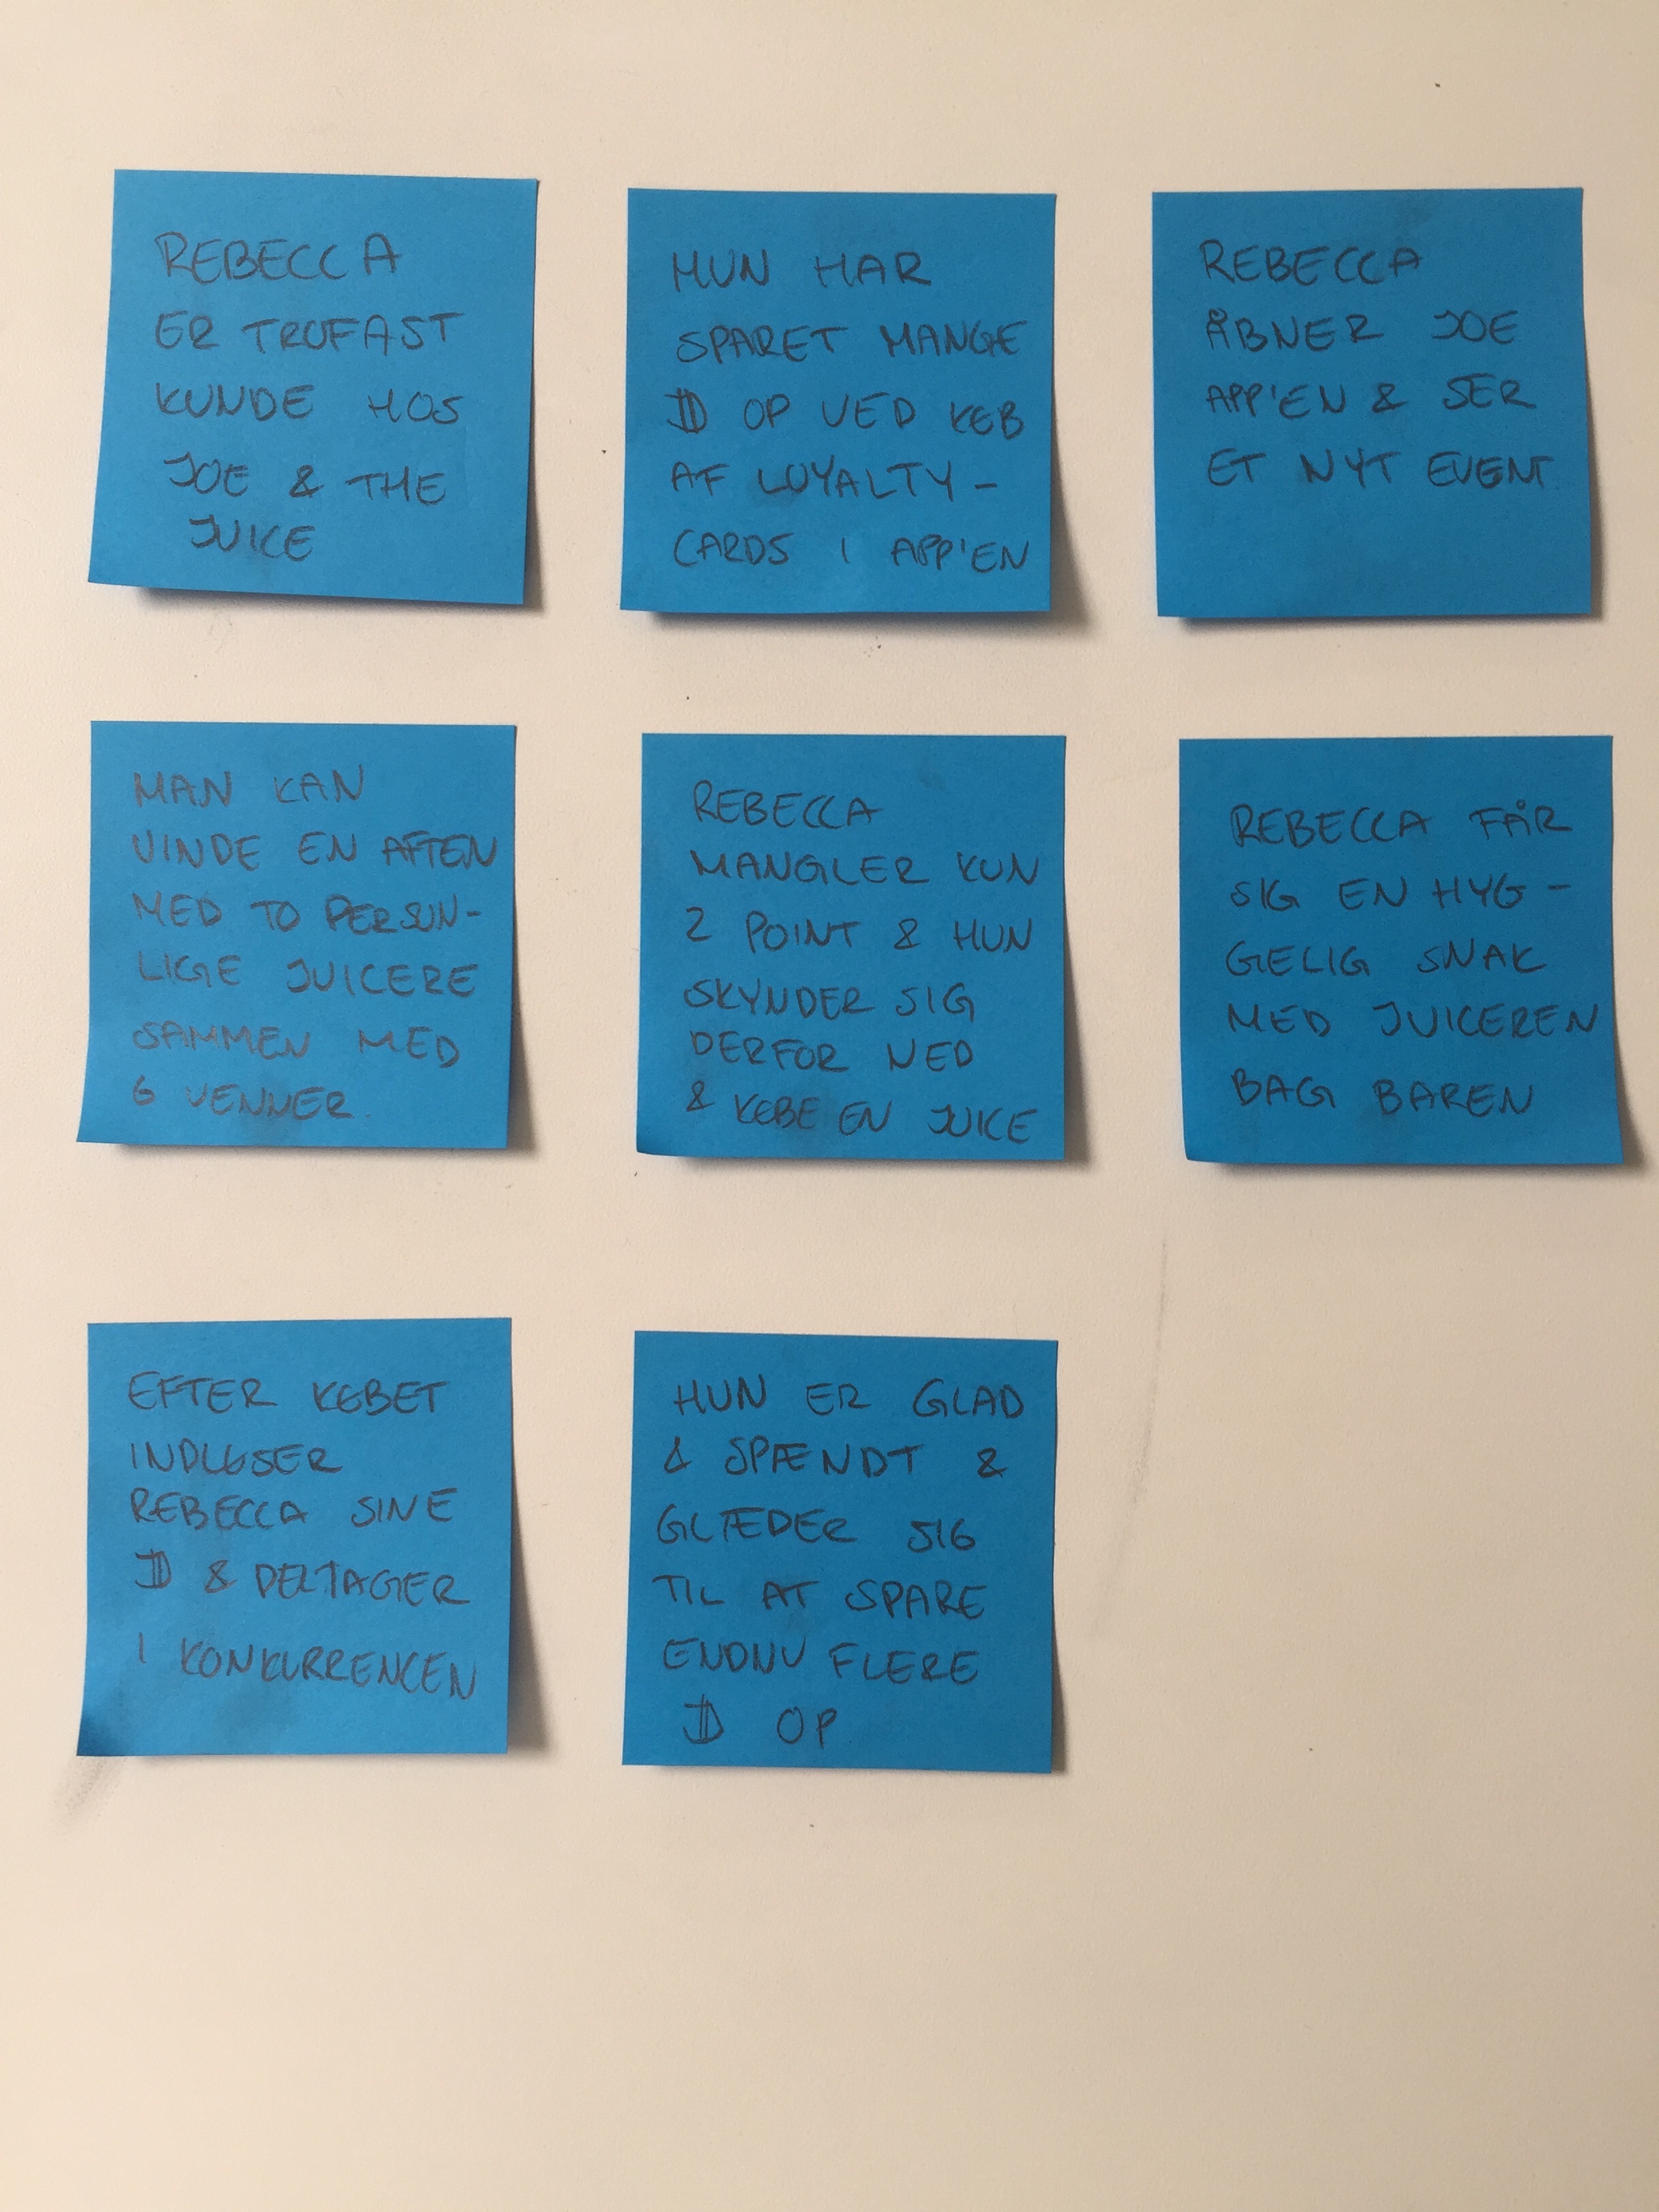 REBECCA
ER TROFAST
KUNDE HOS
JOE & THE
JUICE
HUN HAR
SPARET MANGE
OP VED KØB
AF LOYALTY-
CARDS I APP'EN
REBECCA
ÅBNER JOE
APP'EN & SER
ET NYT EVENT
MAN KAN
VINDE EN AFTEN
MED TO PERSON-
LIGE JUICERE
SAMMEN MED
6 VENNER.
REBECCA
MANGLER KUN
2 POINT & HUN
SKYNDER SIG
DERFOR NED
& KØBE EN JUICE
REBECCA FÅR
SIG EN HYG-
GELIG SNAK
MED JUICEREN
BAG BAREN
EFTER KØBET
INDLØSER
REBECCA SINE
& DELTAGER
I KONKURRENCEN
HUN ER GLAD
& SPÆNDT &
GLÆDER SIG
TIL AT SPARE
ENDNU FLERE
OP